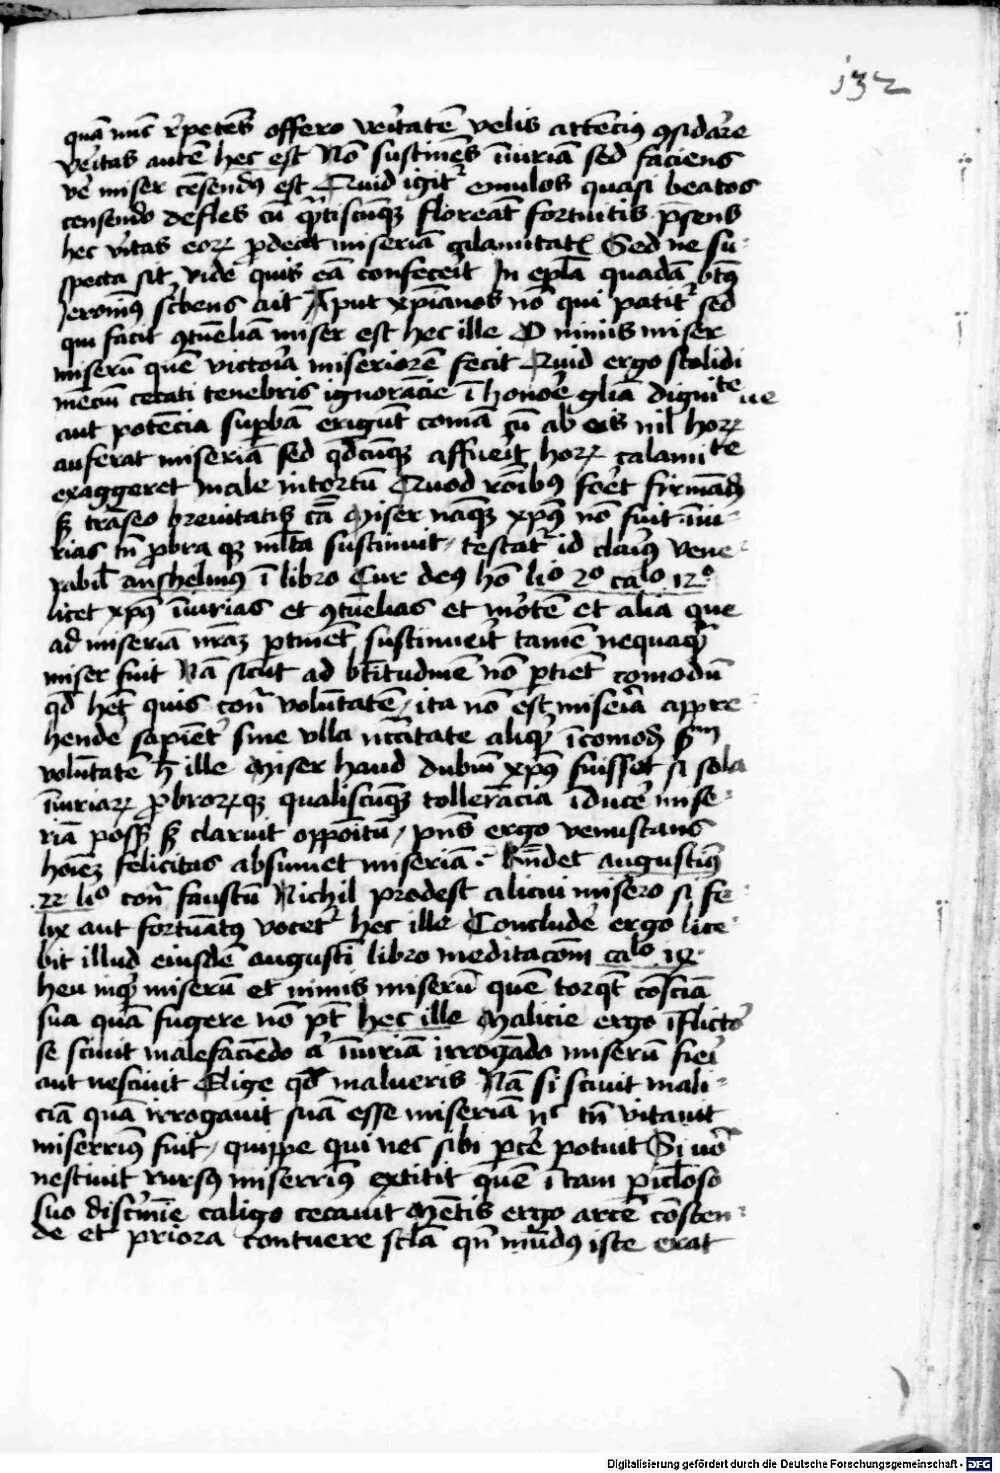 132
quā nūc r̄petēs offero v̓itatē velis attēciꝰ ꝯsidar̓e
v̓itas autē hec est Nō sustinēs īiuriā sed faciens
ve̓ miser cēsendꝰ est Quid igit᷑ emulos quasi beatos
censendo defles cū q̄ntiscūqꝫ floreāt fortuitis p̄sens
hec v̓itas eoꝝ ꝓdeat miseriā calamitatē Sed ne su-
specta sit vide quis eā confecerit In epl̄a quadā btūs
Jeronimꝰ sc̓bens ait Aput xp̄ianos nō qui patit᷑ sed
qui facit ꝯtūelia miser est hec ille O nimis miser
miserū quē victoria miseriorē fecit Quid ergo stolidi
mēciū cecati tenebris ignorācie ī honore gl̄ia dignitate ue
aut potēcia suꝑbā erigūt comā cū ab eis nil hoꝝ
auferat miseriā sed qd̄cūqꝫ affuerit hoꝝ calamitate
exaggeret male intortū Quod rōibꝰ foret firmādū
sꝫ trāseo breuitatis cā Miser nāqꝫ xp̄ꝰ nō fuit iniu-
rias tn̄ ꝓbra qꝫ ml̄ta sustinuit / testat᷑ id clariꝰ vene-
rabil̄ anshelmꝰ ī libro Cur deꝰ hō liº 2º calo 12º
licet xp̄ꝰ īiurias et ꝯtūelias et mortē et alia que
ad miseriā nr̄aꝫ ꝑtinēt sustinuerit tamē nequaqꝫ
miser fuit Nā sicut ad btītudinē nō ꝑtinet comodū
qd̄ het̄ quis cont̄ volūtatē / ita nō est miseria appre
hendere sapienter sine vlla nccitate aliqd̄ īcomodū scdm
volūtatē hec ille Miser haud dubiū xp̄ꝰ fuisset si sola
īiuriaꝝ ꝓbroꝝqꝫ qualiscūqꝫ tollerācia īducere mise-
riā possꝫ sꝫ claruit oppoītū / pn̄s ergo venustans
hoīeꝫ felicitas absumet miseriā . Rn̄det augustīꝰ
22 liº cont̄ faustū Nichil prodest alicui misero si fe-
lix aut fortunatꝰ vocet᷑ hec ille Concludere ergo lice-
bit illud eiusdē augustī libro meditacōm calo 12
heu inqd̄ miserū et nimis miserū quē torqꝫ cōsciā
sua quā fugere nō pt̄ hec ille Malicie ergo īflictor
se sciuit malefaciēdo a̓ īiuriā irrogādo miserū fieri
aut nesciuit Elige qd̄ malueris Nā si sciuit mali-
ciā quā irrogauit suā esse miseriā nc̄ tn̄ vitauit
miserrimꝰ fuit / quippe qui nec sibi ꝑcere potuit Si uo̓
nesciuit rursꝰ miserrimꝰ extitit quē ī tam ꝑiclōso
suo discrimīe caligo cecauit Mētis ergo arcē cōscen-
de et priora contuere sclā qn̄ mūdꝰ iste erat
Digitalisierung gefördert durch die Deutsche Forschungsgemeinschaft - DFG